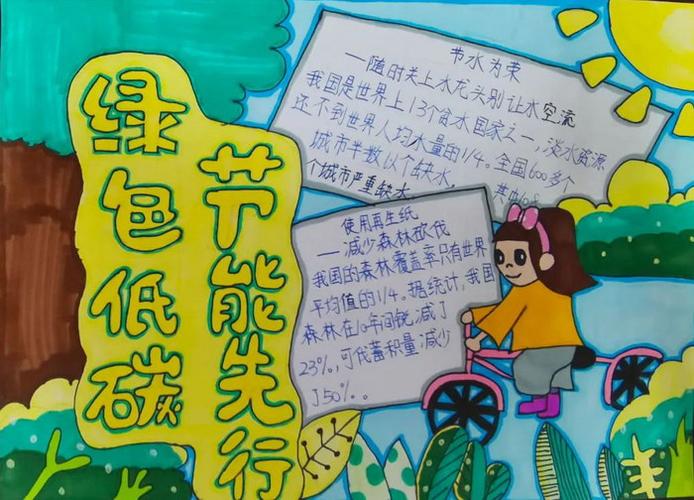 绿色低碳
节能先行
节水为荣
—随时关上水龙头别让水空流
我国是世界上13个贫水国家之一,淡水资源
还不到世界人均水量的1/4。全国600多个
城市半数以个缺水,其中108
个城市严重缺水
使用再生纸
—减少森林砍伐
我国的森林覆盖率只有世界
平均值的1/4。据统计,我国
森林在10年间锐减了
23%,可伐蓄积量减少
了50%。